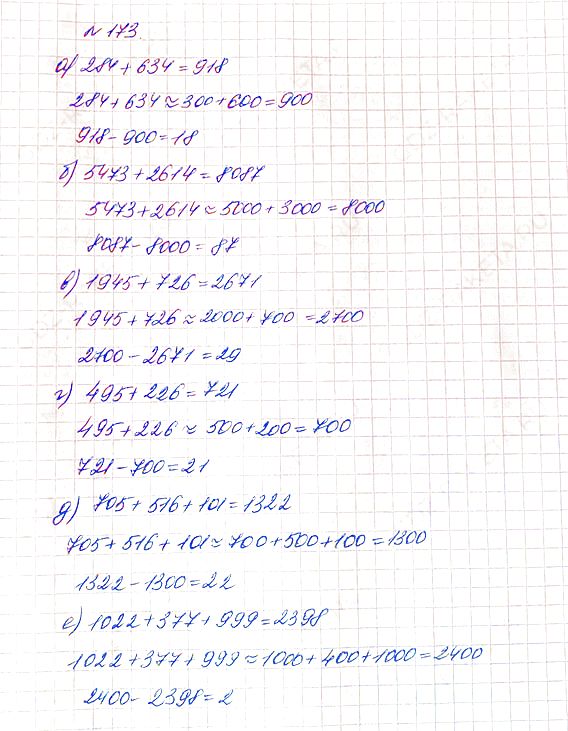 № 173.
а) 284 + 634 = 918
284 + 634 ≈ 300 + 600 = 900
918 - 900 = 18
б) 5473 + 2614 = 8087
5473 + 2614 ≈ 5000 + 3000 = 8000
8087 - 8000 = 87
в) 1945 + 726 = 2671
1945 + 726 ≈ 2000 + 700 = 2700
2700 - 2671 = 29
г) 495 + 226 = 721
495 + 226 ≈ 500 + 200 = 700
721 - 700 = 21
д) 705 + 516 + 101 = 1322
705 + 516 + 101 ≈ 700 + 500 + 100 = 1300
1322 - 1300 = 22
е) 1022 + 377 + 999 = 2398
1022 + 377 + 999 ≈ 1000 + 400 + 1000 = 2400
2400 - 2398 = 2